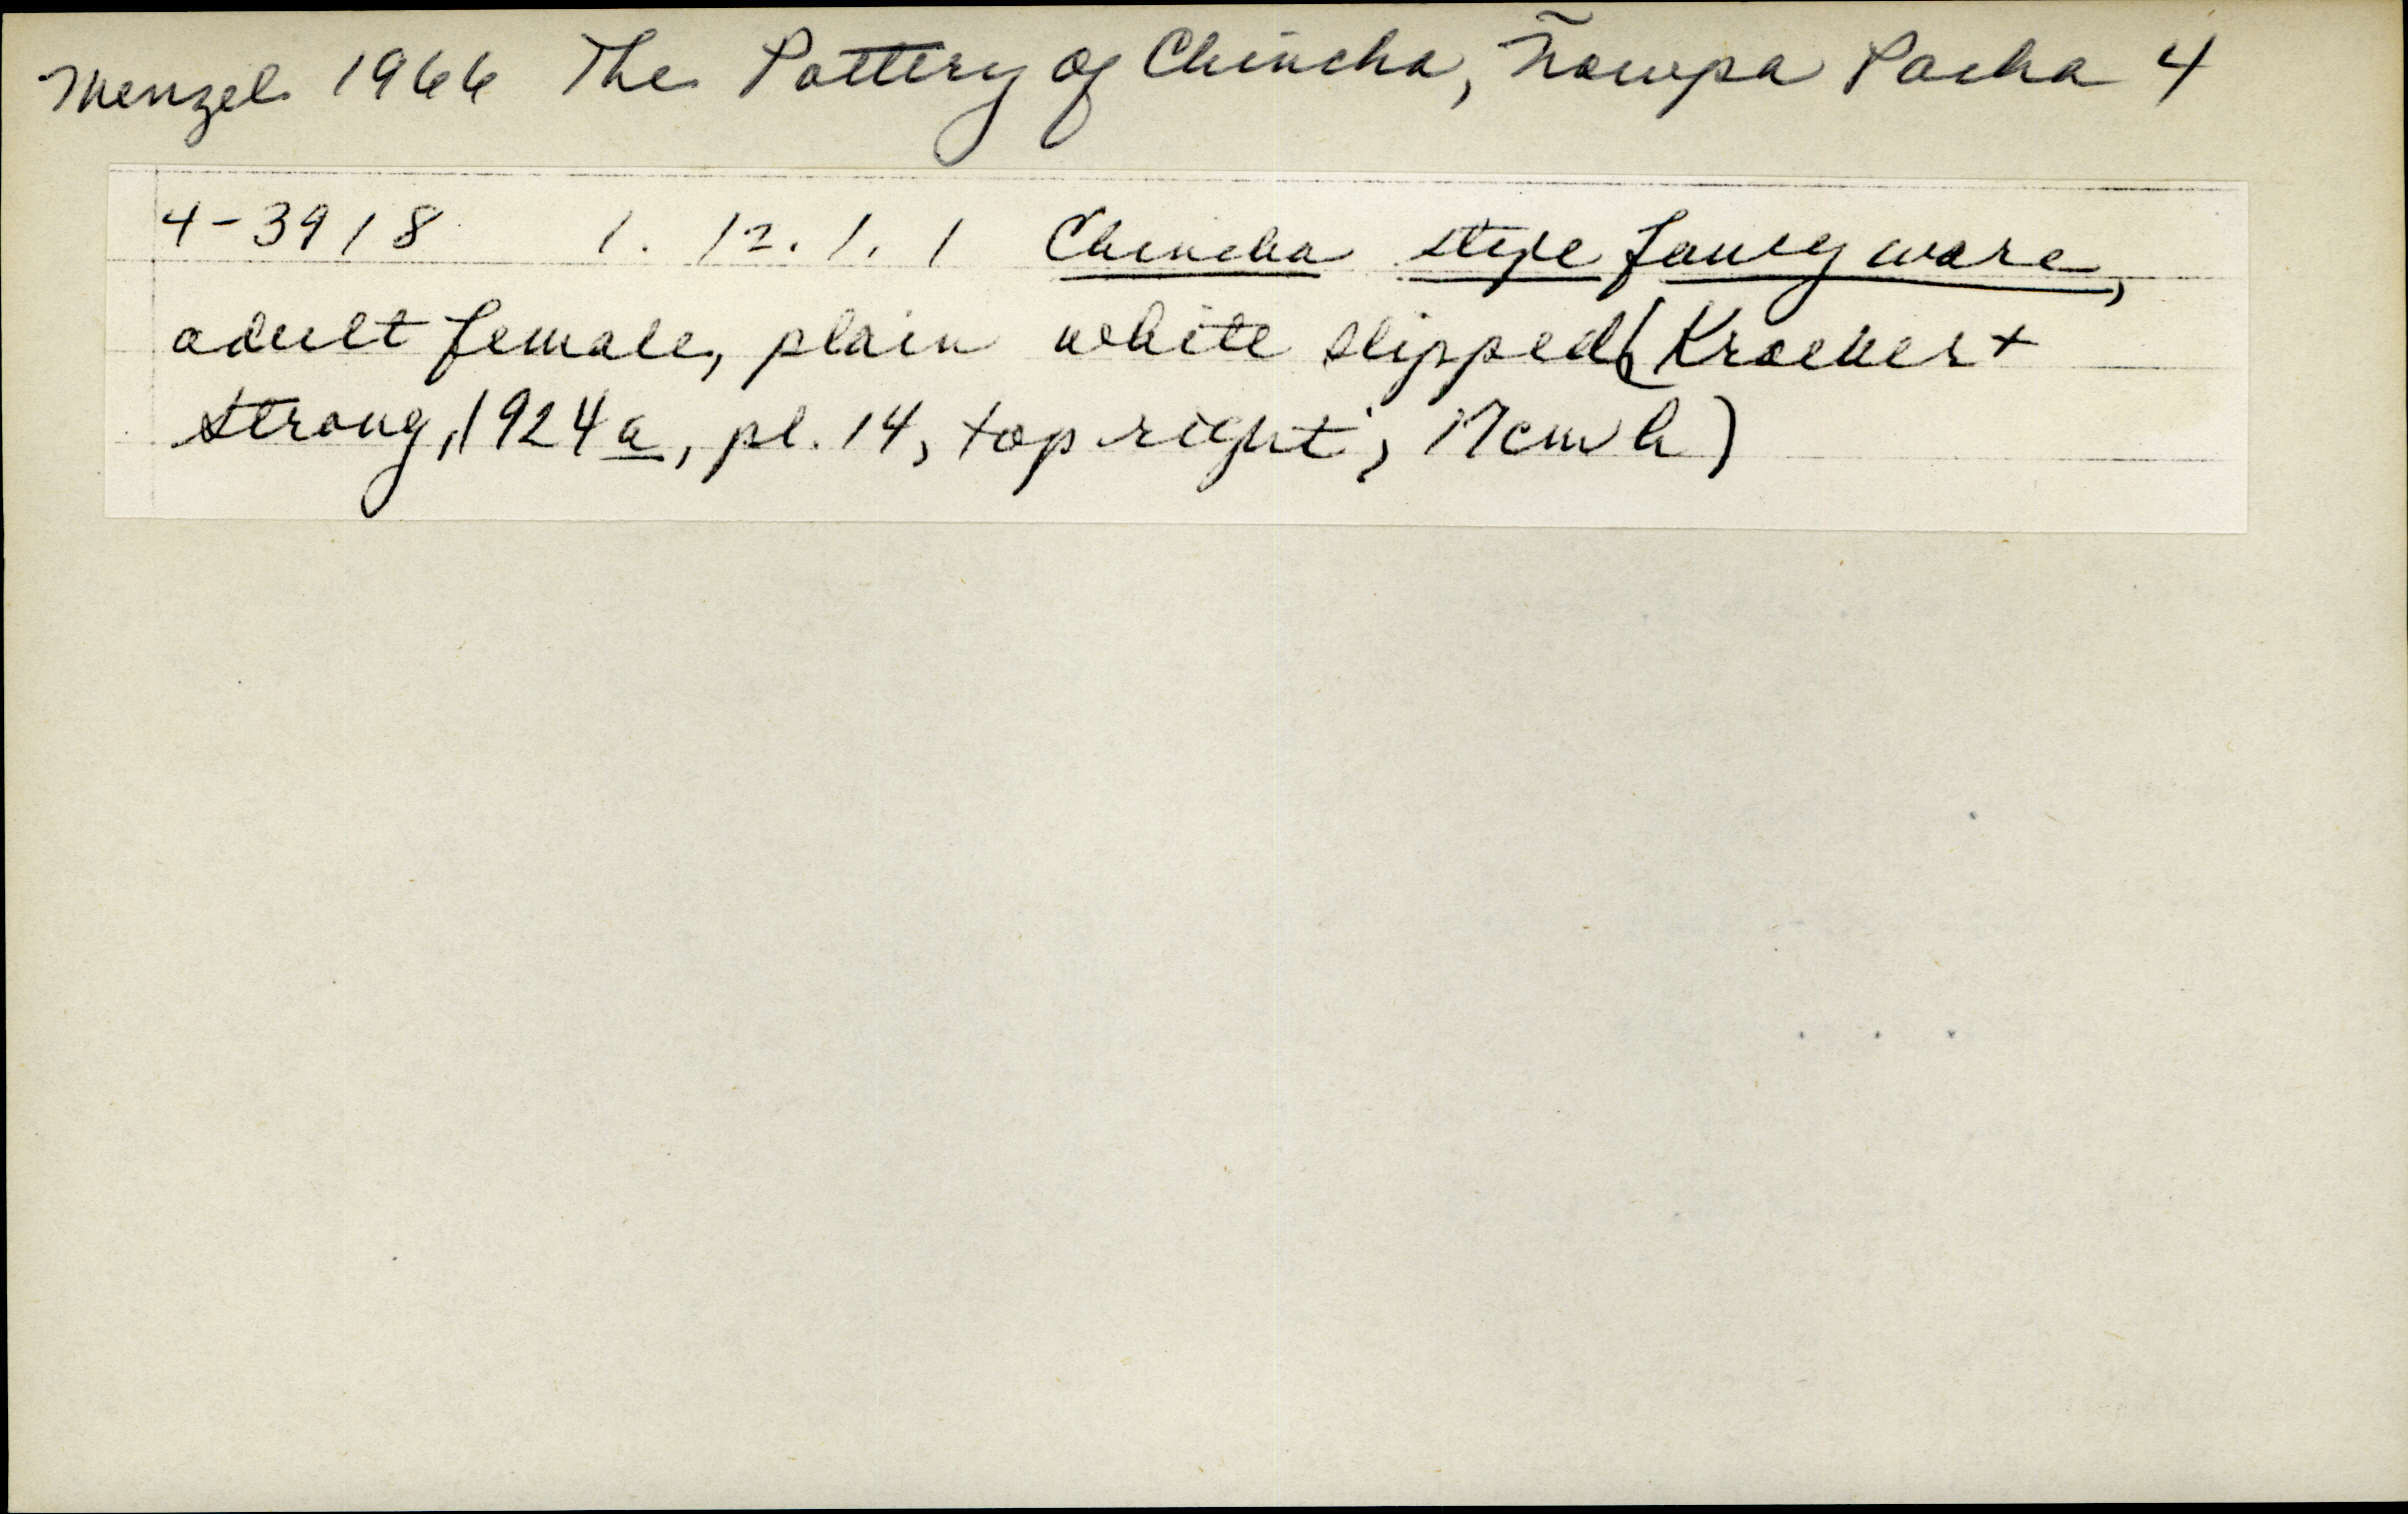 Menzel 1966 The Pottery of Chincha, Ñawpa Pacha 4
4-3918 1.12.1.1 Chincha style fancy ware,
adult female, plain white slipped (Kroeber +
Strong, 1924a, pl. 14, top right; 17cm h)